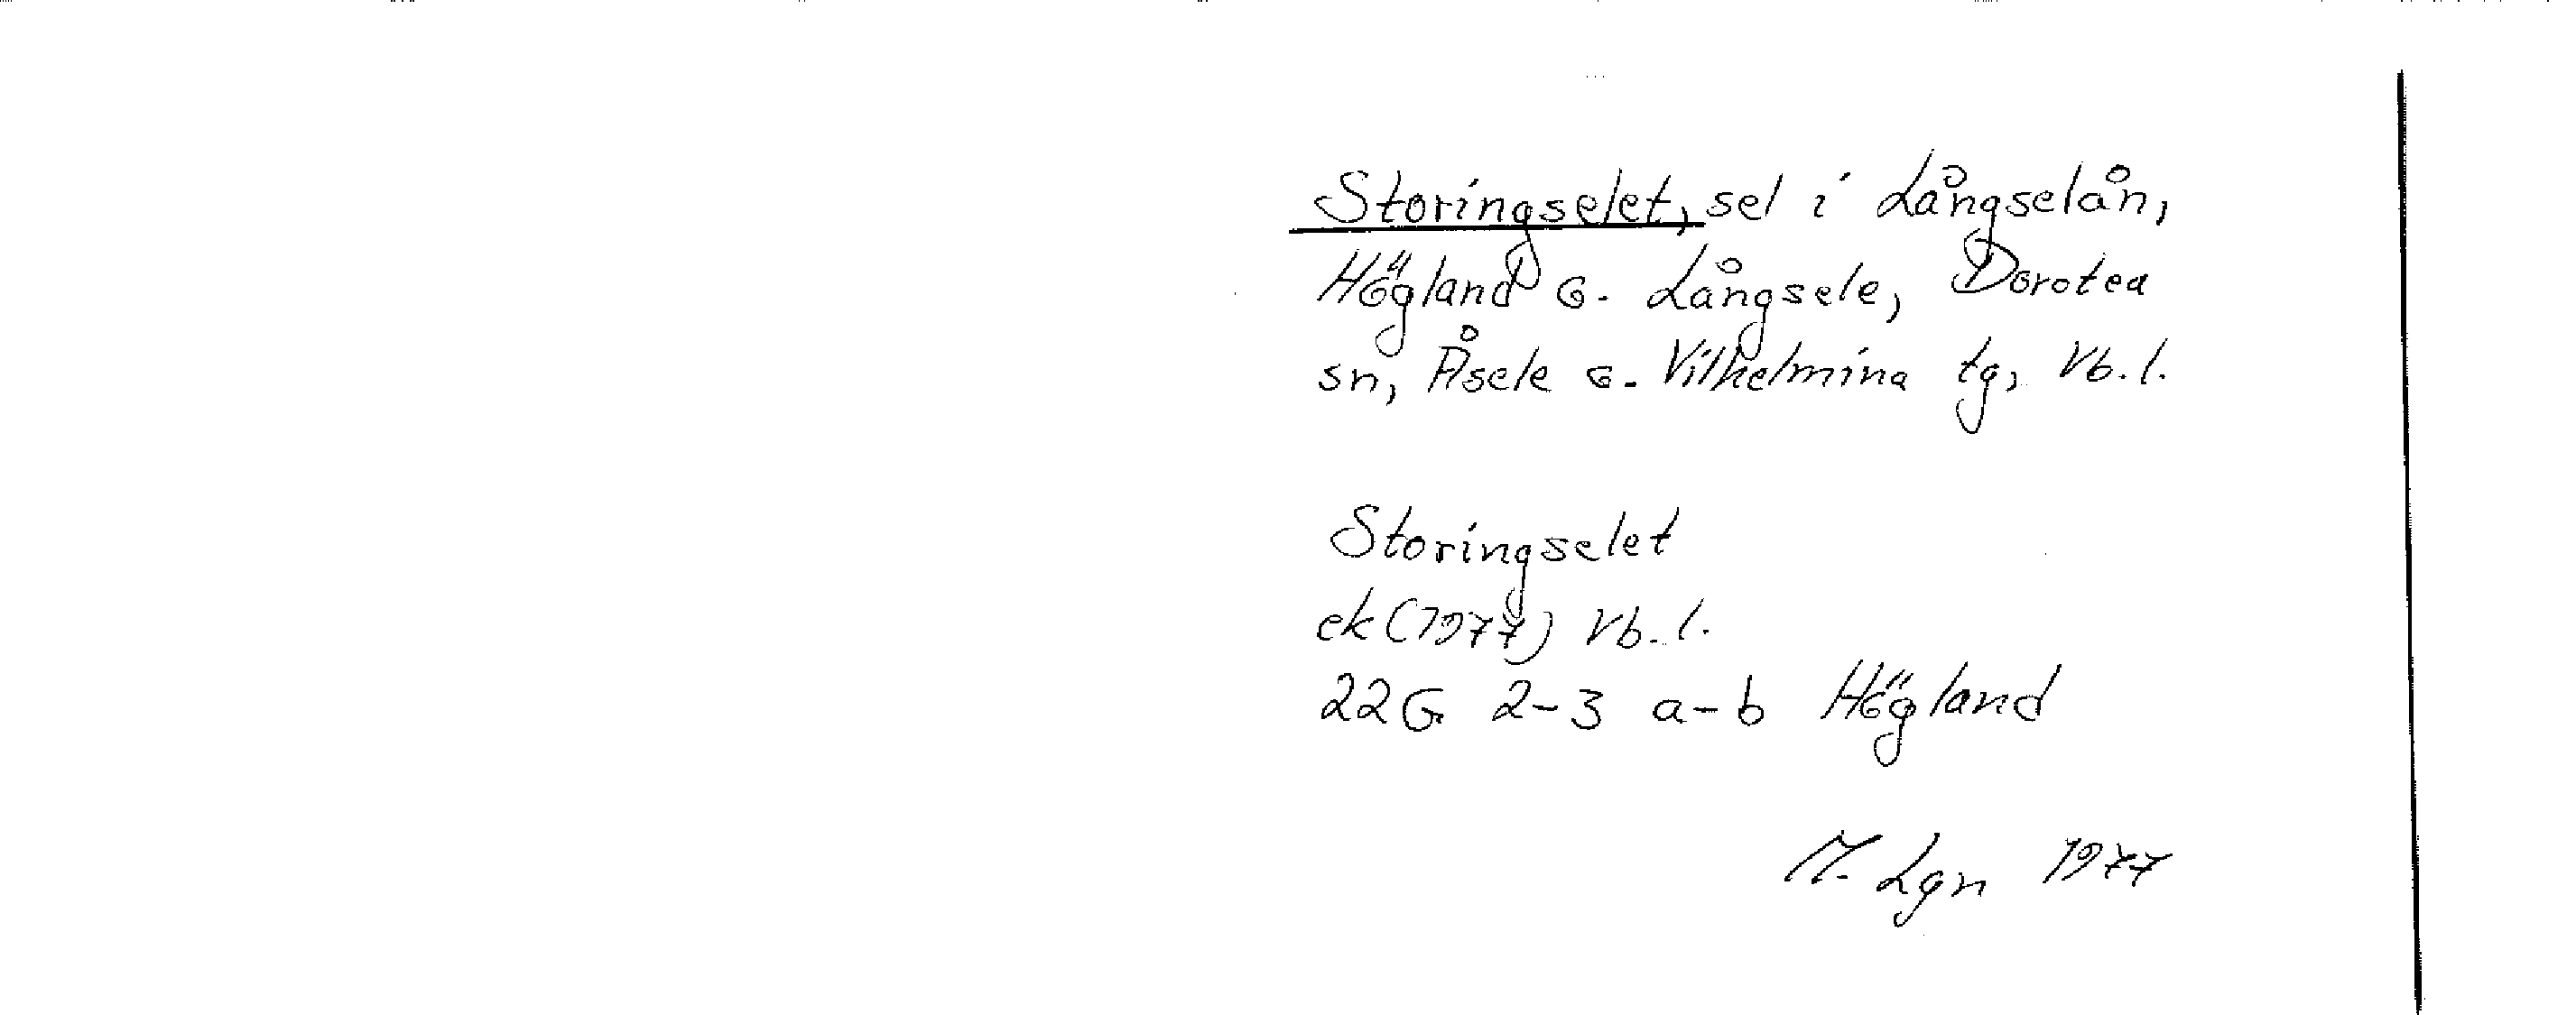 Storingselet, sel i Långselån,
Högland o. Långsele, Dorotea
sn, Åsele o. Vilhelmina tg, Vb.l.
Storingselet
ek (1977) Vb.l.
22G 2-3 a-b Högland
M. Lgn 1977